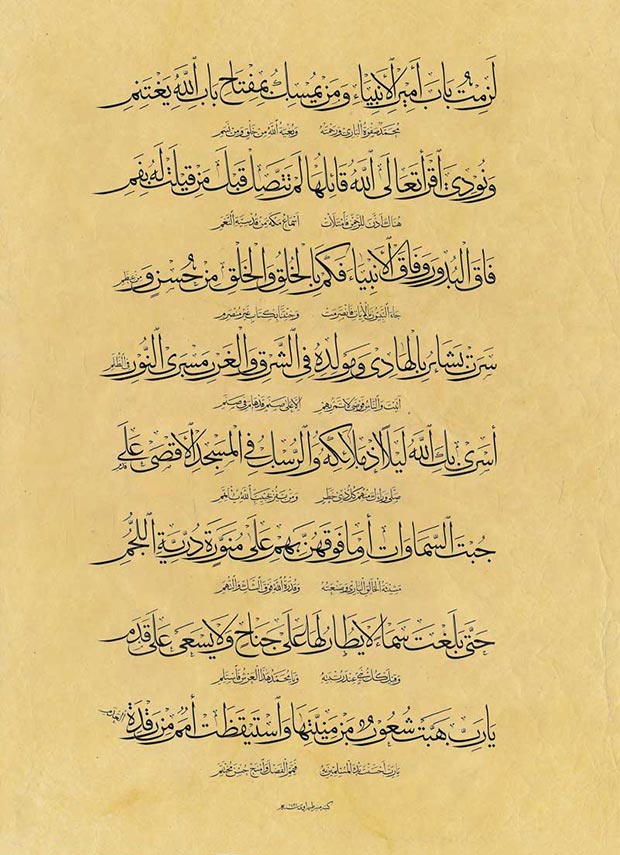 لَزِمْتُ بَابَ أَمِيرِ الْأَنْبِيَاءِ وَمَنْ يُمْسِكْ بِمِفْتَاحِ بَابِ اللّٰهِ يَغْتَنِمِ
محمد صفوة الباري ورحمته وبغية الله من خلق ومن نسم
وَنُودِيَ اقْرَأْ تَعَالَى اللّٰهُ قَائِلُهَا لَمْ تَتَّصِلْ قَبْلَ مَنْ قِيلَتْ لَهُ بِفَمِ
هناك أذن للرحمن فامتلأت أسماع مكة من قدسية النغم
فَاقَ الْبُدُورَ وَفَاقَ الْأَنْبِيَاءَ فَكَمْ بِالْخُلْقِ وَالْخَلْقِ مِنْ حُسْنٍ وَمِنْ عِظَمِ
جاء النبيون بالآيات فانصرمت وجئتنا بكتاب غير منصرم
سَرَتْ بَشَائِرُ بِالْهَادِي وَمَوْلِدِهِ فِي الشَّرْقِ وَالْغَرْبِ مَسْرَى النُّورِ فِي الظُّلَمِ
أتيت والناس فوضى لا تمر بهم إلا على صنم قد هام في صنم
أَسْرَى بِكَ اللّٰهُ لَيْلًا إِذْ مَلَائِكُهُ وَالرُّسْلُ فِي الْمَسْجِدِ الْأَقْصَى عَلَى قَدَمِ
صلى وراءك منهم كل ذي خطر ومن يفز بحبيب الله يأتمم
جُبْتَ السَّمَاوَاتِ أَوْ مَا فَوْقَهُنَّ بِهِمْ عَلَى مُنَوَّرَةٍ دُرِّيَّةِ اللُّجُمِ
مشيئة الخالق الباري وصنعته وقدرة الله فوق الشك والتهم
حَتَّى بَلَغْتَ سَمَاءً لَا يُطَارُ لَهَا عَلَى جَنَاحٍ وَلَا يُسْعَى عَلَى قَدَمِ
وقيل كل نبي عند رتبته ويا محمد هذا العرش فاستلم
يَا رَبِّ هَبَّتْ شُعُوبٌ مِنْ مَنِيَّتِهَا وَاسْتَيْقَظَتْ أُمَمٌ مِنْ رَقْدَةِ الْعَدَمِ
يا رب أحسنت بدء المسلمين به فتمم الفضل وامنح حسن مختتم
كتبه